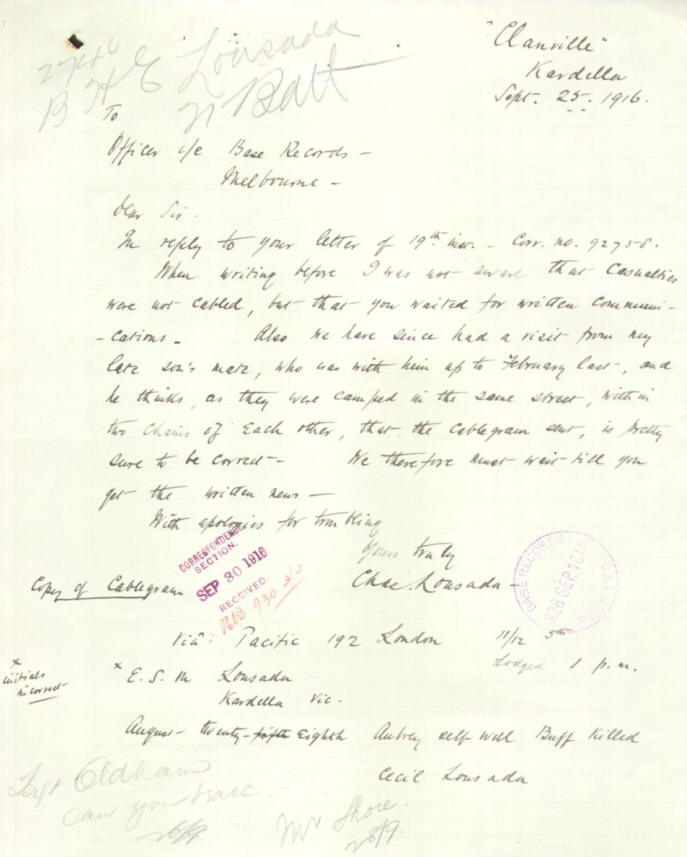 27446
B H E Lousada
21 Batt
"Clanville"
Kardella
Sept. 25. 1916.
To
Officer i/c Base Records -
Melbourne -
Dear Sir.
In reply to your letter of 19th inst. - Corr. no. 92758.
When writing before I was not aware that Casualties
were not cabled, but that you waited for written Communi-
-cations - Also we have since had a visit from my
late son's mate, who was with him up to February last, and
he thinks, as they were camped in the same street, within
two Chains of Each other, that the Cablegram sent, is pretty
sure to be correct - We therefore must wait till you
get the written news -
With apologies for troubling
Yours truly
Chas Lousada
CORRESPONDENCE
SECTION.
SEP 30 1916
RECEIVED.
BASE RECORDS
26 SEP 1916
Copy of Cablegram
Via Pacific 192 London 11/12 5th
Lodged 1 p.m.
x
initials
incorrect
x E. S. M Lousada
Kardella Vic.
August twenty-fifth Eighth Aubrey self well Buff Killed
Cecil Lousada
Sergt Oldham
can you trace.
26/9
Mr Shore.
28/9.